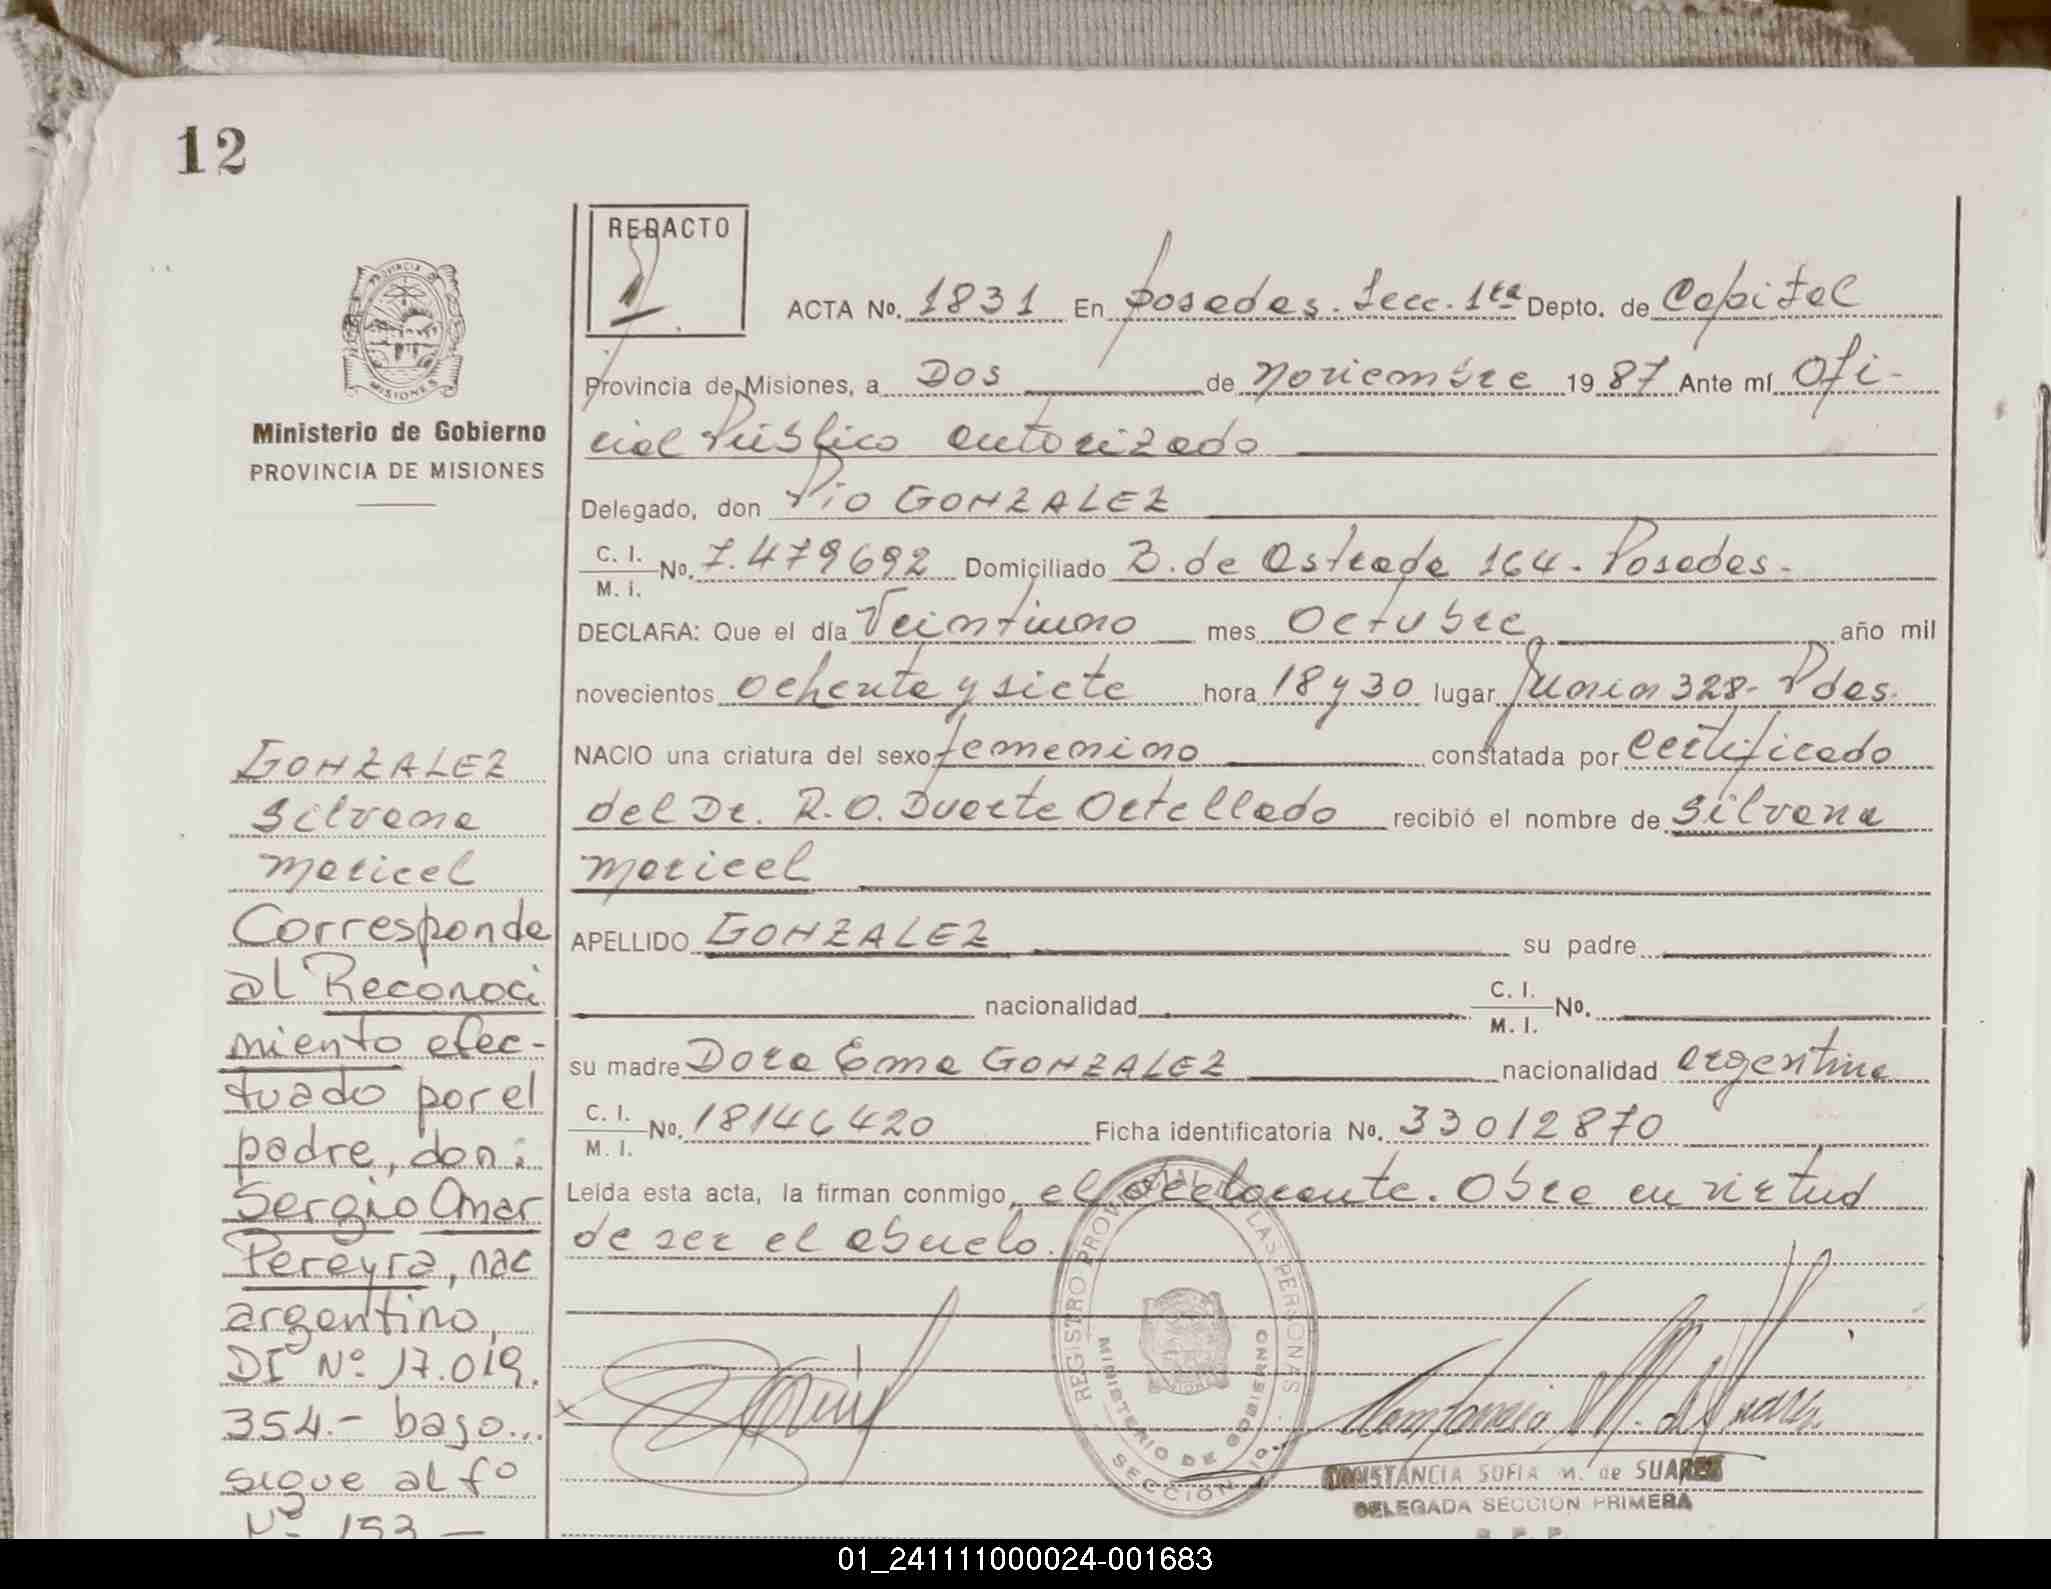 12
REDACTO
ACTA No. 1831 En Posadas. Secc. 1ra Depto. de Capital
Provincia de Misiones, a Dos de Noviembre 1987 Ante mí Ofi-
cial Público autorizado
Delegado, don Pio GONZALEZ
C. I.
M. I. No. 7.479692 Domiciliado B. de Astrada 164. Posadas.
DECLARA: Que el día Veintiuno mes Octubre año mil
novecientos ochenta y siete hora 18 y 30 lugar Junin 328- Pdas.
NACIO una criatura del sexo femenino constatada por Certificado
del Dr. R. O. Duarte Ortellado recibió el nombre de Silvana
Maricel
APELLIDO GONZALEZ su padre
nacionalidad C. I.
M. I. No.
su madre Dora Ema GONZALEZ nacionalidad argentina
C. I.
M. I. No. 18146420 Ficha identificatoria No. 33012870
Leída esta acta, la firman conmigo, el declarante. Obra en virtud
de ser el abuelo.
PROVINCIA DE
MISIONES
Ministerio de Gobierno
PROVINCIA DE MISIONES
GONZALEZ
Silvana
Maricel
Corresponde
al Reconoci
miento efec-
tuado por el
padre, don:
Sergio Omar
Pereyra, nac
argentino,
DI Nº 17.019.
354.- bajo...
sigue al fº
Nº 153 -
REGISTRO PROVINCIAL DE LAS PERSONAS
MINISTERIO DE GOBIERNO
SECCION 1o.
CONSTANCIA SOFIA M. de SUAREZ
DELEGADA SECCION PRIMERA
R. P. P.
01_241111000024-001683